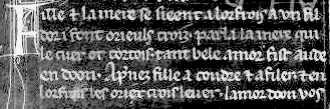 Fille ⁊ la mere se sieent a lorfrois a un fil
dor i font orieuls croiz parla la mere qui
le cuer ot cortois· tant bele amor fist aude
en doon· Ap̃nez fille a coudre ⁊ a filer ⁊ en
lorfrois ories crois lever· lamor doon vos